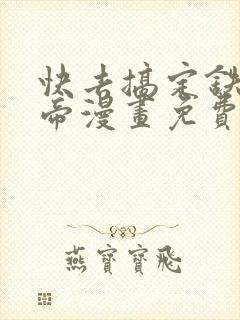 快去搞定鉄
帝漫畫免費
燕寶寶飛